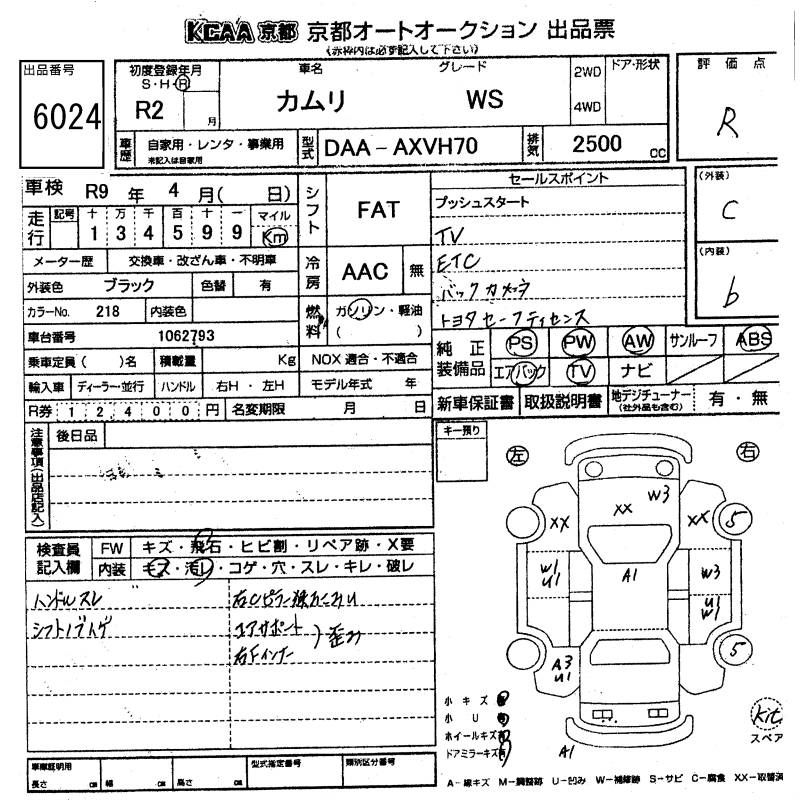 KCAA 京都 京都オートオークション 出品票
(赤枠内は必ず記入して下さい)
出品番号
6024
初度登録年月
S・H・R
R2 月
車名
カムリ
グレード
WS
2WD
4WD
ドア・形状
評価点
R
車歴
自家用・レンタ・事業用
未記入は自家用
型式
DAA-AXVH70
排気
2500 cc
車検 R9 年 4 月( 日)
走行
記号 十 万 千 百 十 一 マイル
1 3 4 5 9 9 Km
シフト
FAT
セールスポイント
プッシュスタート
TV
ETC
バックカメラ
トヨタセーフティセンス
(外装)
C
(内装)
b
メーター歴 交換車・改ざん車・不明車
冷房
AAC 無
外装色 ブラック 色替 有
カラーNo. 218 内装色
燃料
ガソリン・軽油
( )
車台番号 1062793
乗車定員( )名 積載量 Kg
NOX 適合・不適合
輸入車 ディーラー・並行 ハンドル 右H・左H モデル年式 年
R券 1 2 4 0 0 円 名変期限 月 日
純正装備品
PS PW AW サンルーフ ABS
エアバック TV ナビ
新車保証書 取扱説明書 地デジチューナー 有・無
(社外品も含む)
注意事項(出品店記入)
後日品
キー預り
左 右
検査員記入欄
FW キズ・飛石・ヒビ割・リペア跡・X要
内装 キズ・汚レ・コゲ・穴・スレ・キレ・破レ
ハンドルスレ
シフトノブハゲ
右Cピラー
コアサポート
右Fインナー
歪み
XX XX W3 XX 5
W1 U1 A1 W3
U1 W1
A3 U1 5
小キズ
小U
ホイールキズ
ドアミラーキズ
A1
kit
スペア
車庫証明用
長さ cm 幅 cm 高さ cm
型式指定番号
類別区分番号
A-線キズ M-調整跡 U-凹み W-補修跡 S-サビ C-腐食 XX-取替済